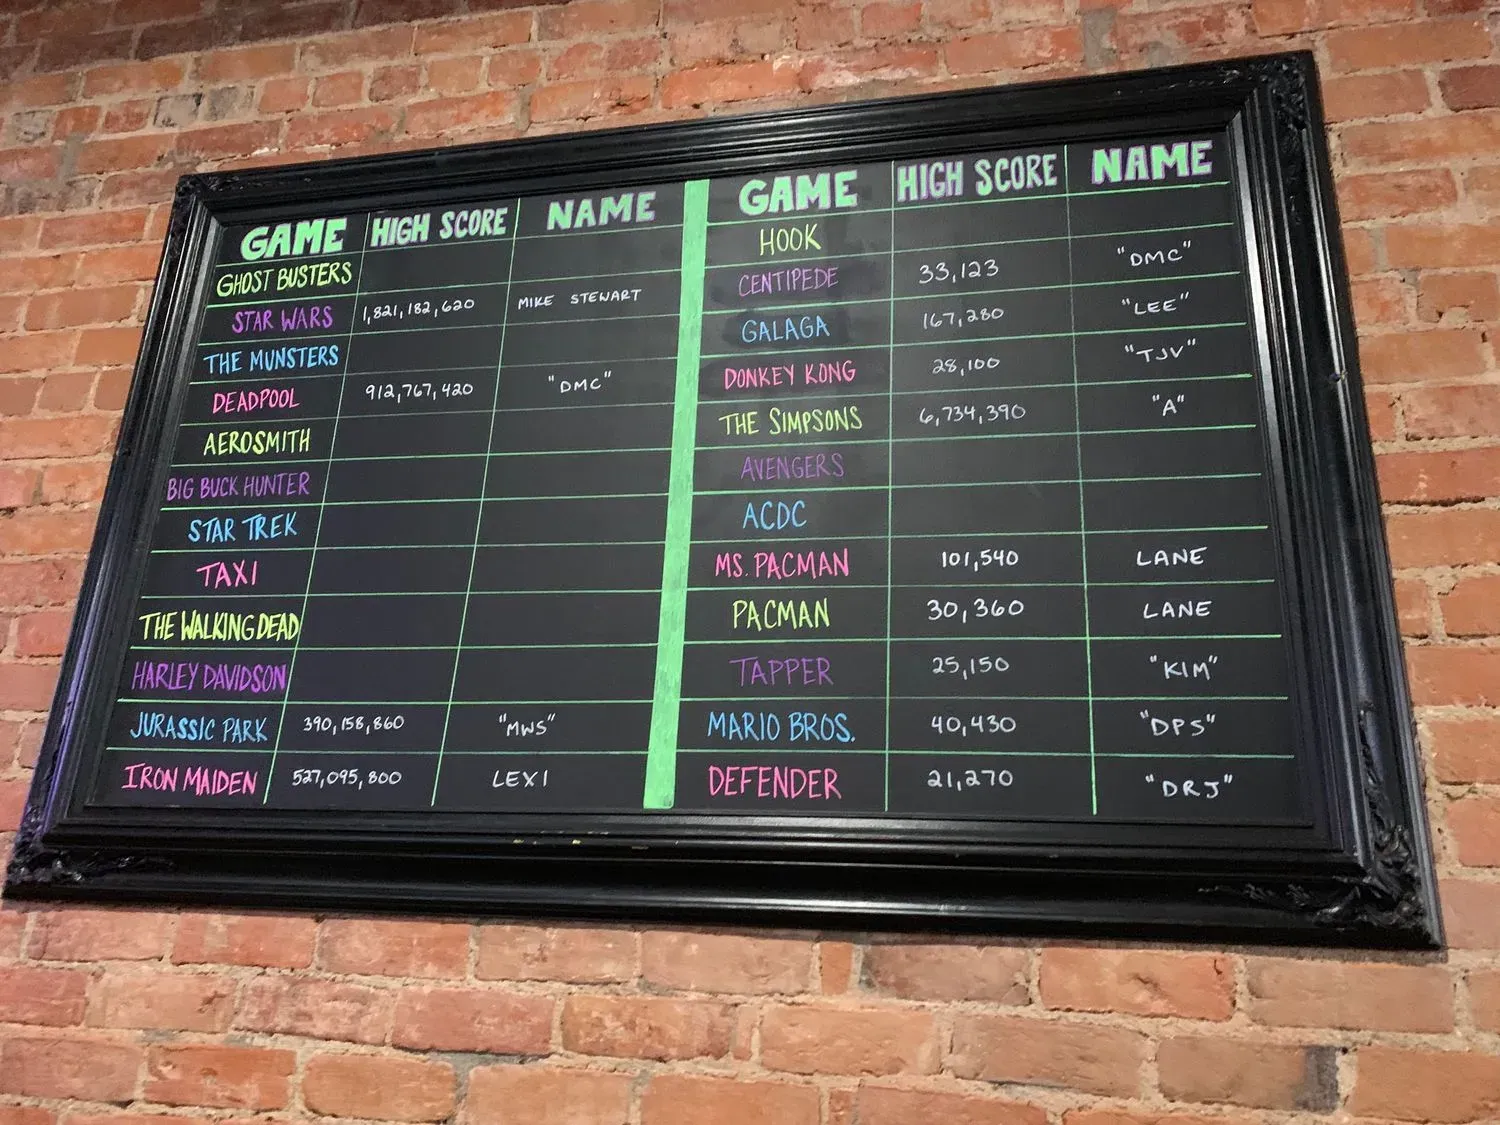 GAME HIGH SCORE NAME
GHOST BUSTERS
STAR WARS 1,821,182,620 MIKE STEWART
THE MUNSTERS
DEADPOOL 912,767,420 "DMC"
AEROSMITH
BIG BUCK HUNTER
STAR TREK
TAXI
THE WALKING DEAD
HARLEY DAVIDSON
JURASSIC PARK 390,158,860 "MWS"
IRON MAIDEN 527,095,800 LEXI
GAME HIGH SCORE NAME
HOOK
CENTIPEDE 33,123 "DMC"
GALAGA 167,280 "LEE"
DONKEY KONG 28,100 "TJV"
THE SIMPSONS 6,734,390 "A"
AVENGERS
ACDC
MS. PACMAN 101,540 LANE
PACMAN 30,360 LANE
TAPPER 25,150 "KIM"
MARIO BROS. 40,430 "DPS"
DEFENDER 21,270 "DRJ"